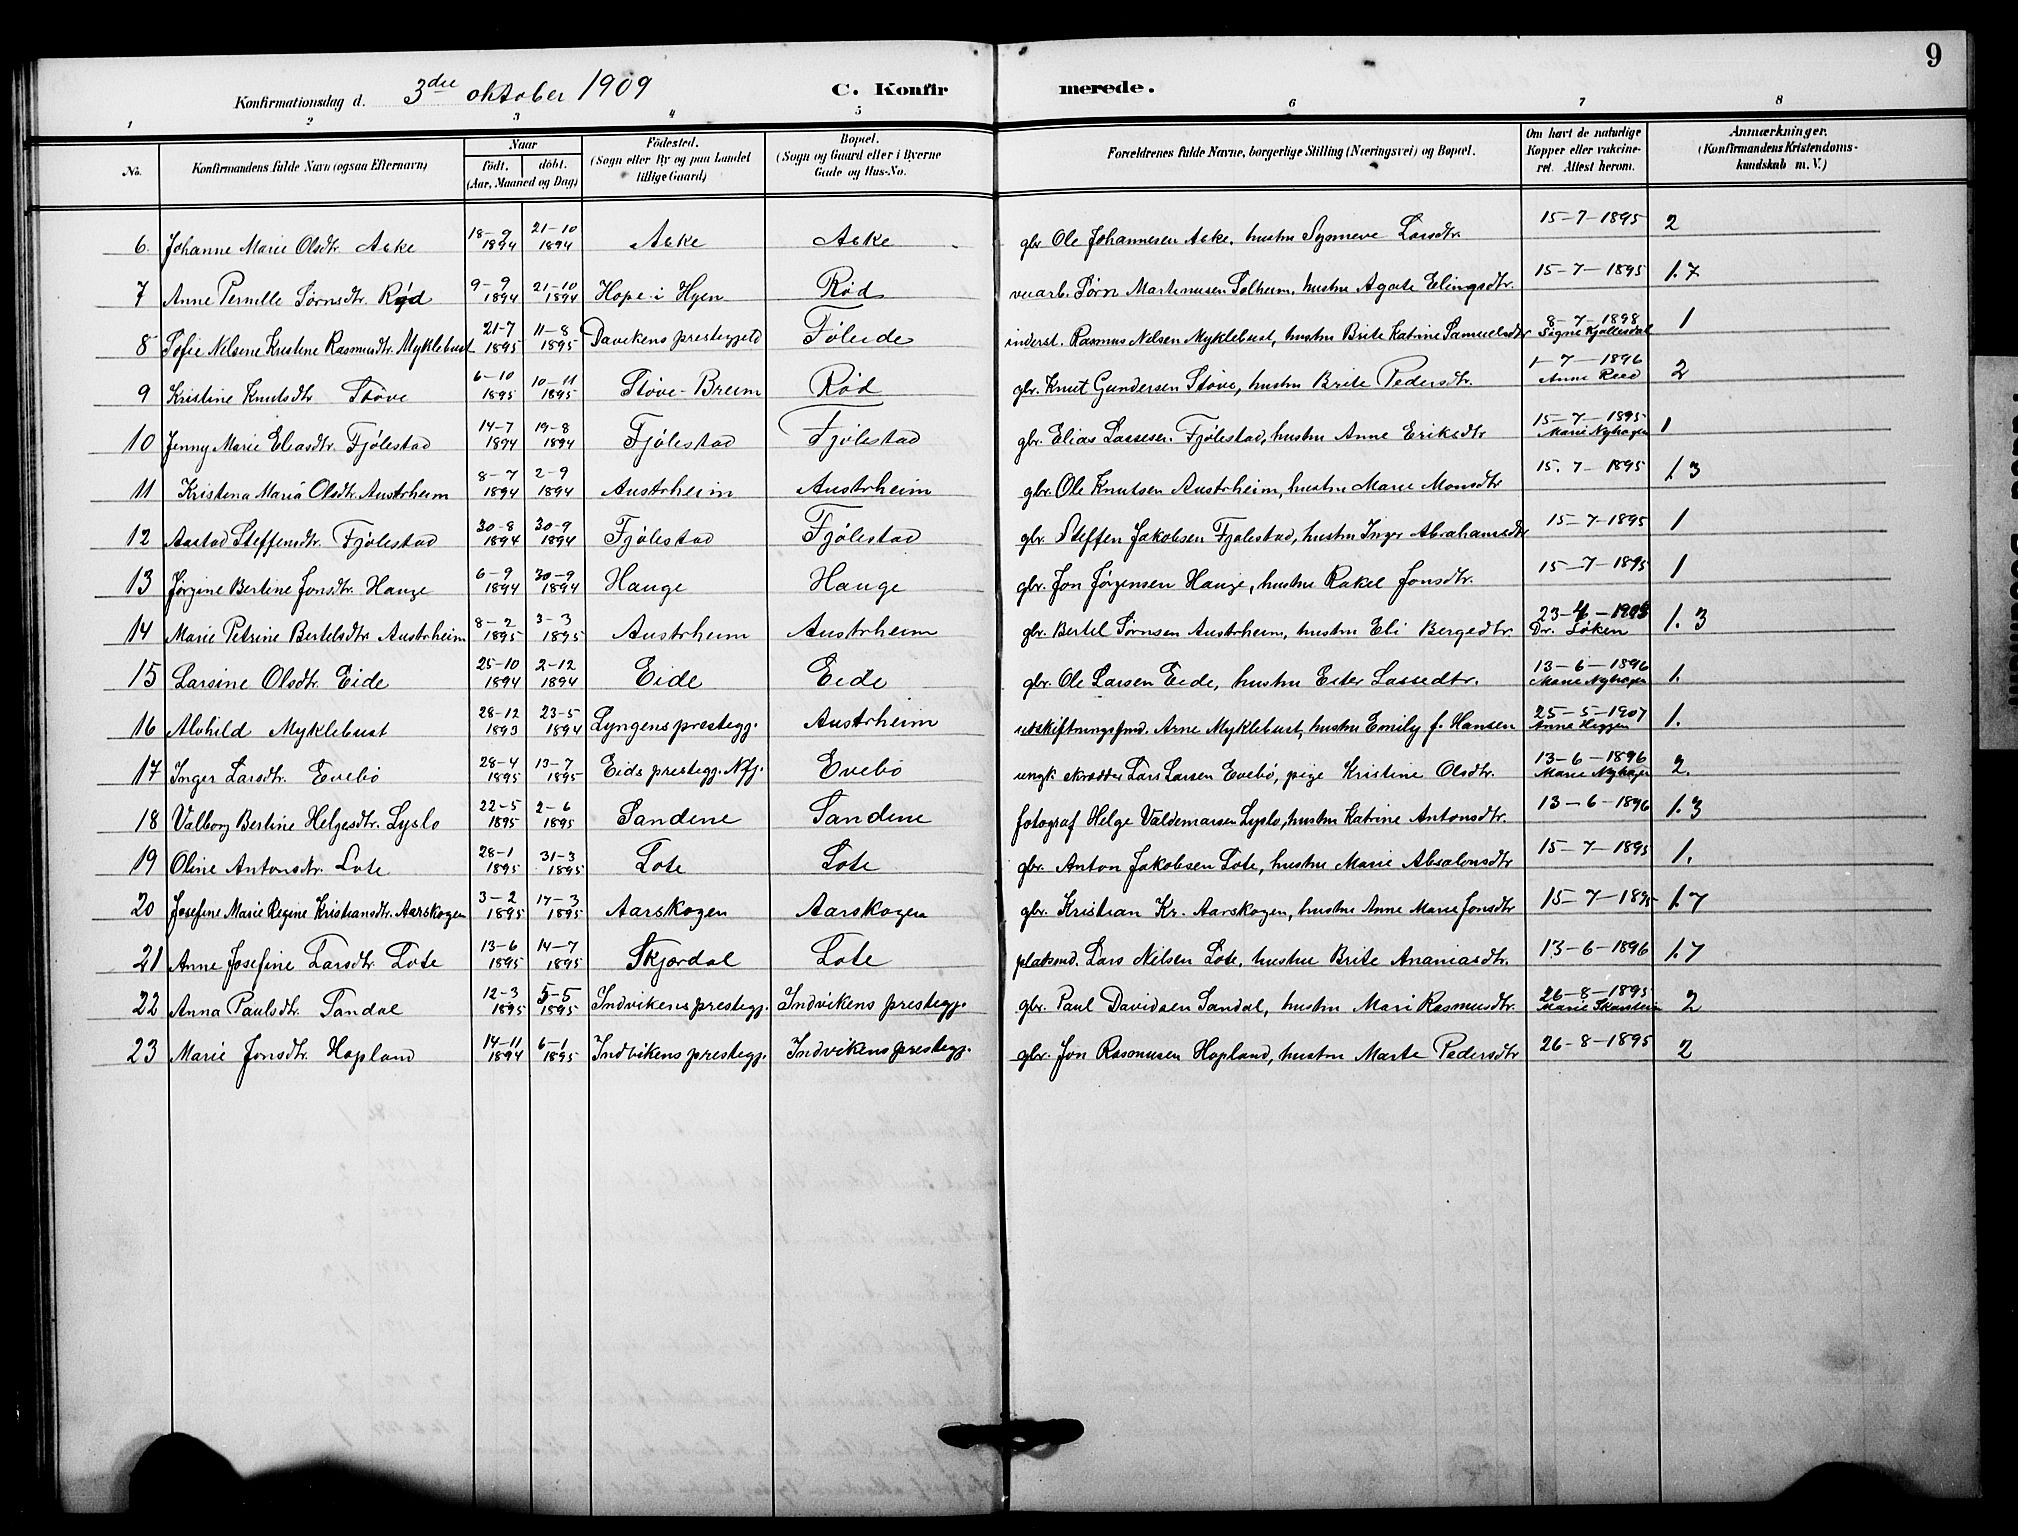 9
Konfirmationsdag d. 3die oktober 1909 C. Konfirmerede.
1 2 3 4 5 6 7 8
No. Konfirmandens fulde Navn (ogsaa Efternavn) Naar født. døbt. (Aar, Maaned og Dag) Fødested. (Sogn eller By og paa Landet tillige Gaard) Bopæl. (Sogn og Gaard eller i Byerne Gade og Hus-No. Forældrenes fulde Navne, borgerlige Stilling (Næringsvei) og Bopæl. Om havt de naturlige Kopper eller vakcineret. Attest herom. Anmærkninger. (Konfirmandens Kristendomskundskab m. V.)
6. Johanne Marie Olsdtr. Aske 18-9 1894 21-10 1894 Aske Aske gbr. Ole Johannesen Aske, hustru Synneve Larsdtr. 15-7-1895 2
7 Anne Pernille Sørnsdtr. Rød 9-9 1894 21-10 1894 Hope i Hyen Rød Sørn Martinusen Solheim, hustru Agate Elingsdtr. 15-7-1895 1.7
8 Sofie Nilsine Kristine Rasmusdtr. Myklebust 21-7 1895 11-8 1895 Davikens prestegjeld Føleide inderst. Rasmus Nilsen Myklebust, hustru Brite Katrine Samuelsdtr 8-7-1898 Signe Kjøllesdal 1
9 Kristine Knutsdtr Støve 6-10 1895 10-11 1895 Støve-Breim Rød gbr. Knut Gundersen Støve, hustru Brite Pedersdtr. 1-7-1896 Anne Reed 2
10 Jenny Marie Eliasdtr. Fjølestad 14-7 1894 19-8 1894 Fjølestad Fjølestad gbr. Elias Lassesen Fjølestad, hustru Anne Eriksdtr 15-7-1895 Marie Nyhagen 1
11 Kristena Maria Olsdtr Austrheim 8-7 1894 2-9 1894 Austrheim Austrheim gbr. Ole Knutsen Austrheim, hustru Marie Monsdtr 15.7-1895 1.3
12 Aastad Steffensdtr. Fjølestad 30-8 1894 30-9 1894 Fjølestad Fjølestad gbr. Steffen Jakobsen Fjølestad, hustru Inger Abrahamsdtr 15-7-1895 1
13 Jørgine Bertine Jonsdtr. Hauge 6-9 1894 30-9 1894 Hauge Hauge gbr. Jon Jørgensen Hauge, hustru Rakel Jonsdtr. 15-7-1895 1
14 Marie Petrine Bertelsdtr. Austrheim 8-2 1895 3-3 1895 Austrheim Austrheim gbr. Bertel Sørnsen Austrheim, hustru Eli Bergedtr. 23-4-1908 Dr. Løken 1.3
15 Larsine Olsdtr. Eide 25-10 1894 2-12 1894 Eide Eide gbr. Ole Larsen Eide, hustru Ester Lassedtr. 13-6-1896 Marie Nyhagen 1.
16 Alvhild Myklebust 28-12 1893 23-5 1894 Lyngens prestegj. Austrheim udskiftningsfmd. Arne Myklebust, hustru Emily f. Hansen 25-5-1907 Anna Heggen 1.
17 Inger Larsdtr. Evebø 28-4 1895 13-7 1895 Eids prestegj. Nfj. Evebø ungk. skrædder Lars Larsen Evebø, pige Kristine Olsdtr. 13-6-1896 Marie Nyhagen 2.
18 Valborg Bertine Helgesdtr. Lyslo 22-5 1895 2-6 1895 Sandene Sandene fotograf Helge Valdemarsen Lyslo, hustru Katrine Antonsdtr. 13-6-1896 1.3
19 Oline Antonsdtr. Lote 28-1 1895 31-3 1895 Lote Lote gbr. Anton Jakobsen Lote, hustru Marie Absalonsdtr 15-7-1895 1.
20 Josefine Marie Regine Kristiansdtr. Aarskogen 3-2 1895 17-3 1895 Aarskogen Aarskogen gbr. Kristian Kr. Aarskogen, hustru Anne Marie Jonsdtr 15-7-1895 1.7
21 Anne Josefine Larsdtr Lote 13-6 1895 14-7 1895 Skjærdal Lote pladsmd. Lars Nilsen Lote, hustru Brite Ananiasdtr. 13-6-1896 1.7
22 Anna Paulsdtr. Sandal 12-3 1895 5-5 1895 Indvikens prestegj. Indvikens prestegj. gbr. Paul Davidsen Sandal, hustru Mari Rasmusdtr. 26-8-1895 Marie Skarstein 2
23 Marie Jonsdtr. Hopland 14-11 1894 6-1 1895 Indvikens prestegj. Indvikens prestegj. gbr. Jon Rasmusen Hopland, hustru Marte Pedersdtr 26-8-1895 2